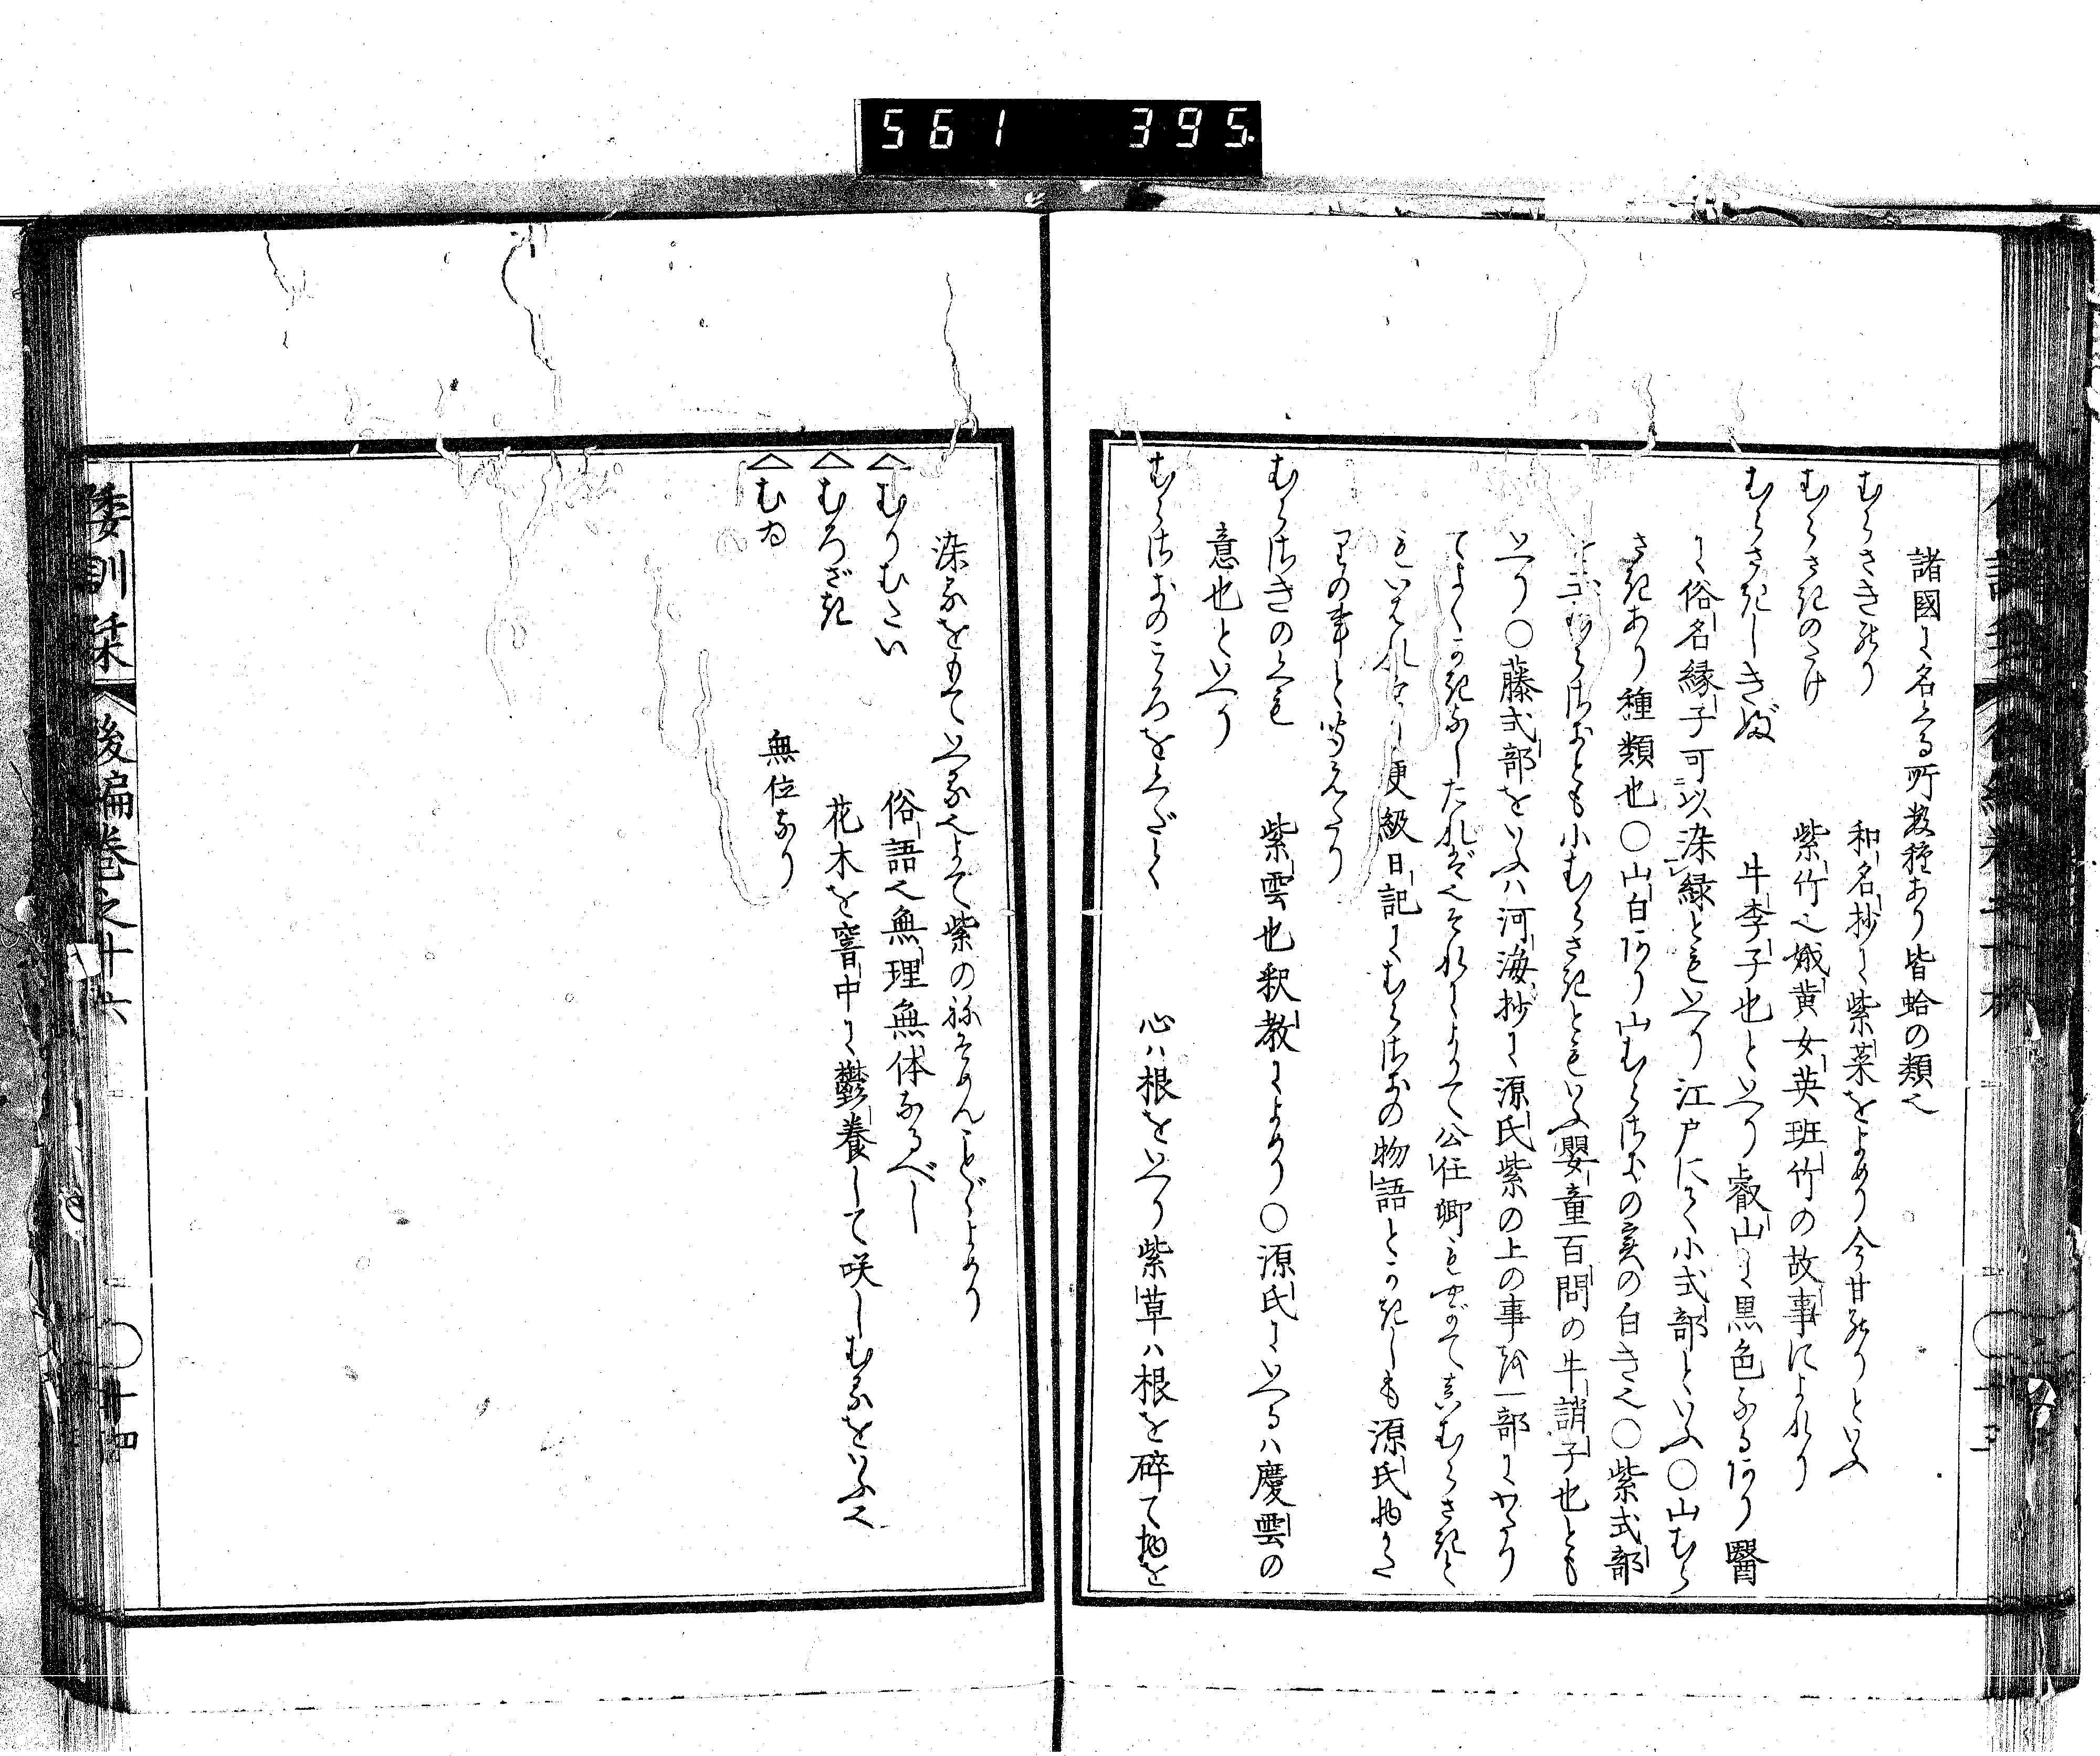 561 395
諸國に名くる所数種あり皆蛤の類也
むらさきのり 和名抄に紫菜をよめり今甘のりといふ
むらさきのたけ 紫竹也娥黄女英班竹の故事によれり
むらさきしきぶ 牛李子也といへり叡山に黒色なるあり醫
に俗名縁子可以染緑ともいへり江戸にて小式部といふ〇山むら
さきあり種類也〇山白あり山むらさきの実の白き也〇紫式部
むらさきとも小むらさきともいふ嬰童百問の牛誚子也とも
いへり〇藤式部をいふハ河海抄に源氏紫の上の事を一部にわたり
てよくかきなしたれば也それによりて公任卿もわがむらさきと
もいはれ更級日記にむらさきの物語とかきしも源氏物かた
りの事と聞えたり
むらさきのくも 紫雲也釈教によめり〇源氏にいへるハ慶雲の
意也といへり
むらさきのこころをくだく 心ハ根をいへり紫草ハ根を碎て物を
染るをもていへる也よて紫の神そめんことゞよめり
へむりむたい 俗語也無理無体なるべし
へむろざき 花木を窖中に鬱養して咲しむるをいふ也
へむゐ 無位なり
倭訓栞 後編巻之十六 十四